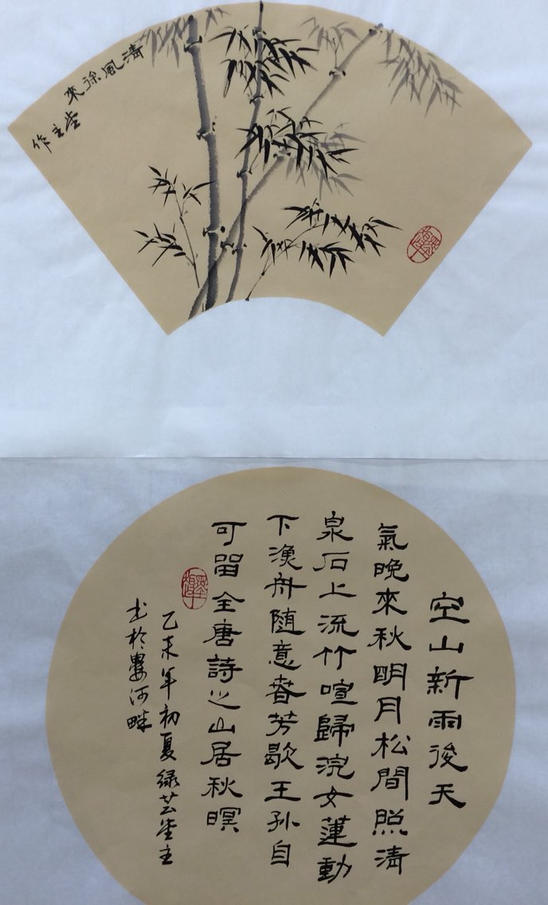 清風徐來
堂主作
空山新雨後天
氣晚來秋明月松間照清
泉石上流竹喧歸浣女蓮動
下漁舟隨意春芳歇王孫自
可留全唐詩之山居秋暝
乙未年初夏绿芸堂主
书於婁河畔